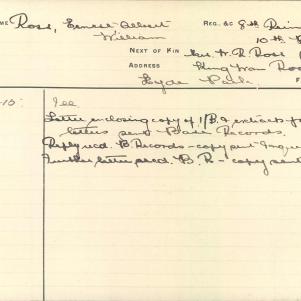 ME Ross, Ernest Albert
William
REG. &C 8th Rein
10th
NEXT OF KIN Mr. W. R. Ross
ADDRESS King Wm Roa
Hyde Park
Letter enclosing copy of 1/B. & extracts fr
letters sent Base Records.
Reply recd. B Records - copy sent Inqu
Further letter recd. B. R - copy sent